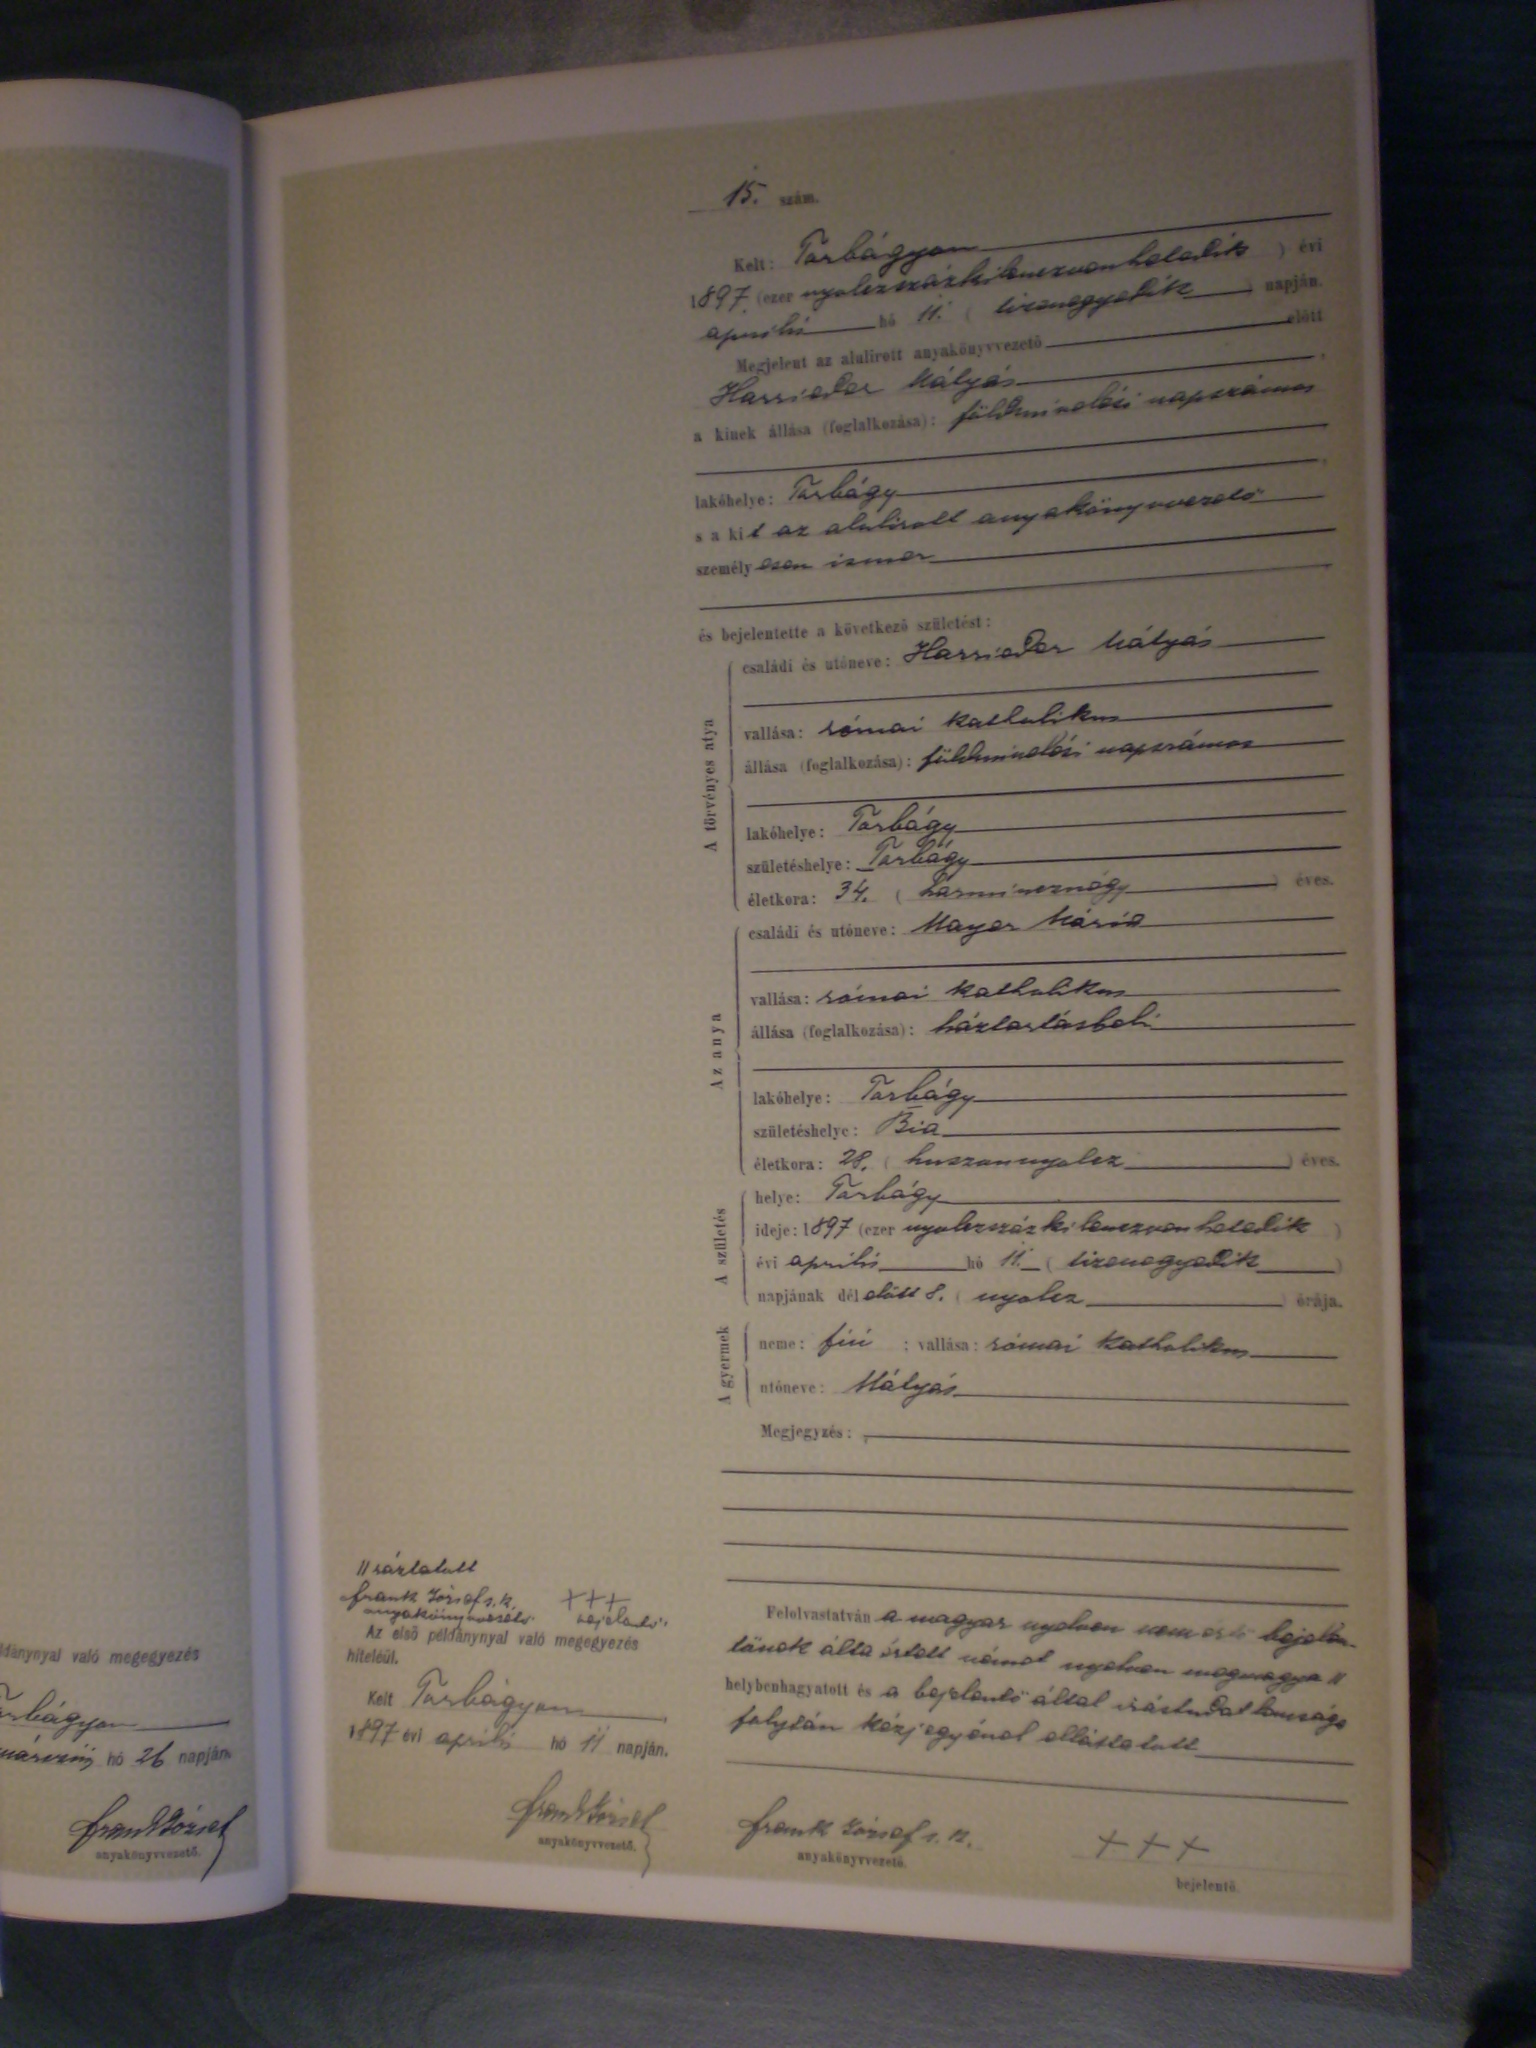 15. szám.
Kelt: Torbágyon
1897. (ezer nyolczszázkilenczvenhetedik ) évi
április hó 11. ( tizenegyedik ) napján.
Megjelent az alulirott anyakönyvvezető előtt
Harrieder Mátyás
a kinek állása (foglalkozása): földmivelési napszámos
lakóhelye: Torbágy
s a kit az alulirott anyakönyvvezető
személyesen ismer
és bejelentette a következő születést:
A törvényes atya
családi és utóneve: Harrieder Mátyás
vallása: római katholikus
állása (foglalkozása): földmivelési napszámos
lakóhelye: Torbágy
születéshelye: Torbágy
életkora: 34. ( harmincznégy ) éves.
Az anya
családi és utóneve: Mayer Mária
vallása: római katholikus
állása (foglalkozása): háztartásbeli
lakóhelye: Torbágy
születéshelye: Bia
életkora: 28. ( huszonnyolcz ) éves.
A születés
helye: Torbágy
ideje: 1897 (ezer nyolczszázkilenczvenhetedik )
évi április hó 11. ( tizenegyedik )
napjának délelőtt 8. ( nyolcz ) órája.
A gyermek
neme: fiú ; vallása: római katholikus
utóneve: Mátyás
Megjegyzés:
Felolvastatván a magyar nyelven nem értő bejelen-
tőnek álta értett német nyelven megmagya //
helybenhagyatott és a bejelentő által irástudatlansága
folytán kézjegyével elláttatott
Frank József s. k.
anyakönyvvezető.
+ + +
bejelentő.
// ráztatott
Frank József s. k. + + +
anyakönyvvezető. bejelentő.
Az első példánynyal való megegyezés
hiteléül.
Kelt Torbágyon
1897 évi április hó 11 napján.
Frank József
anyakönyvvezető.
ldánynyal való megegyezés
orbágyon
márczius hó 26 napján.
Frank József
anyakönyvvezető.